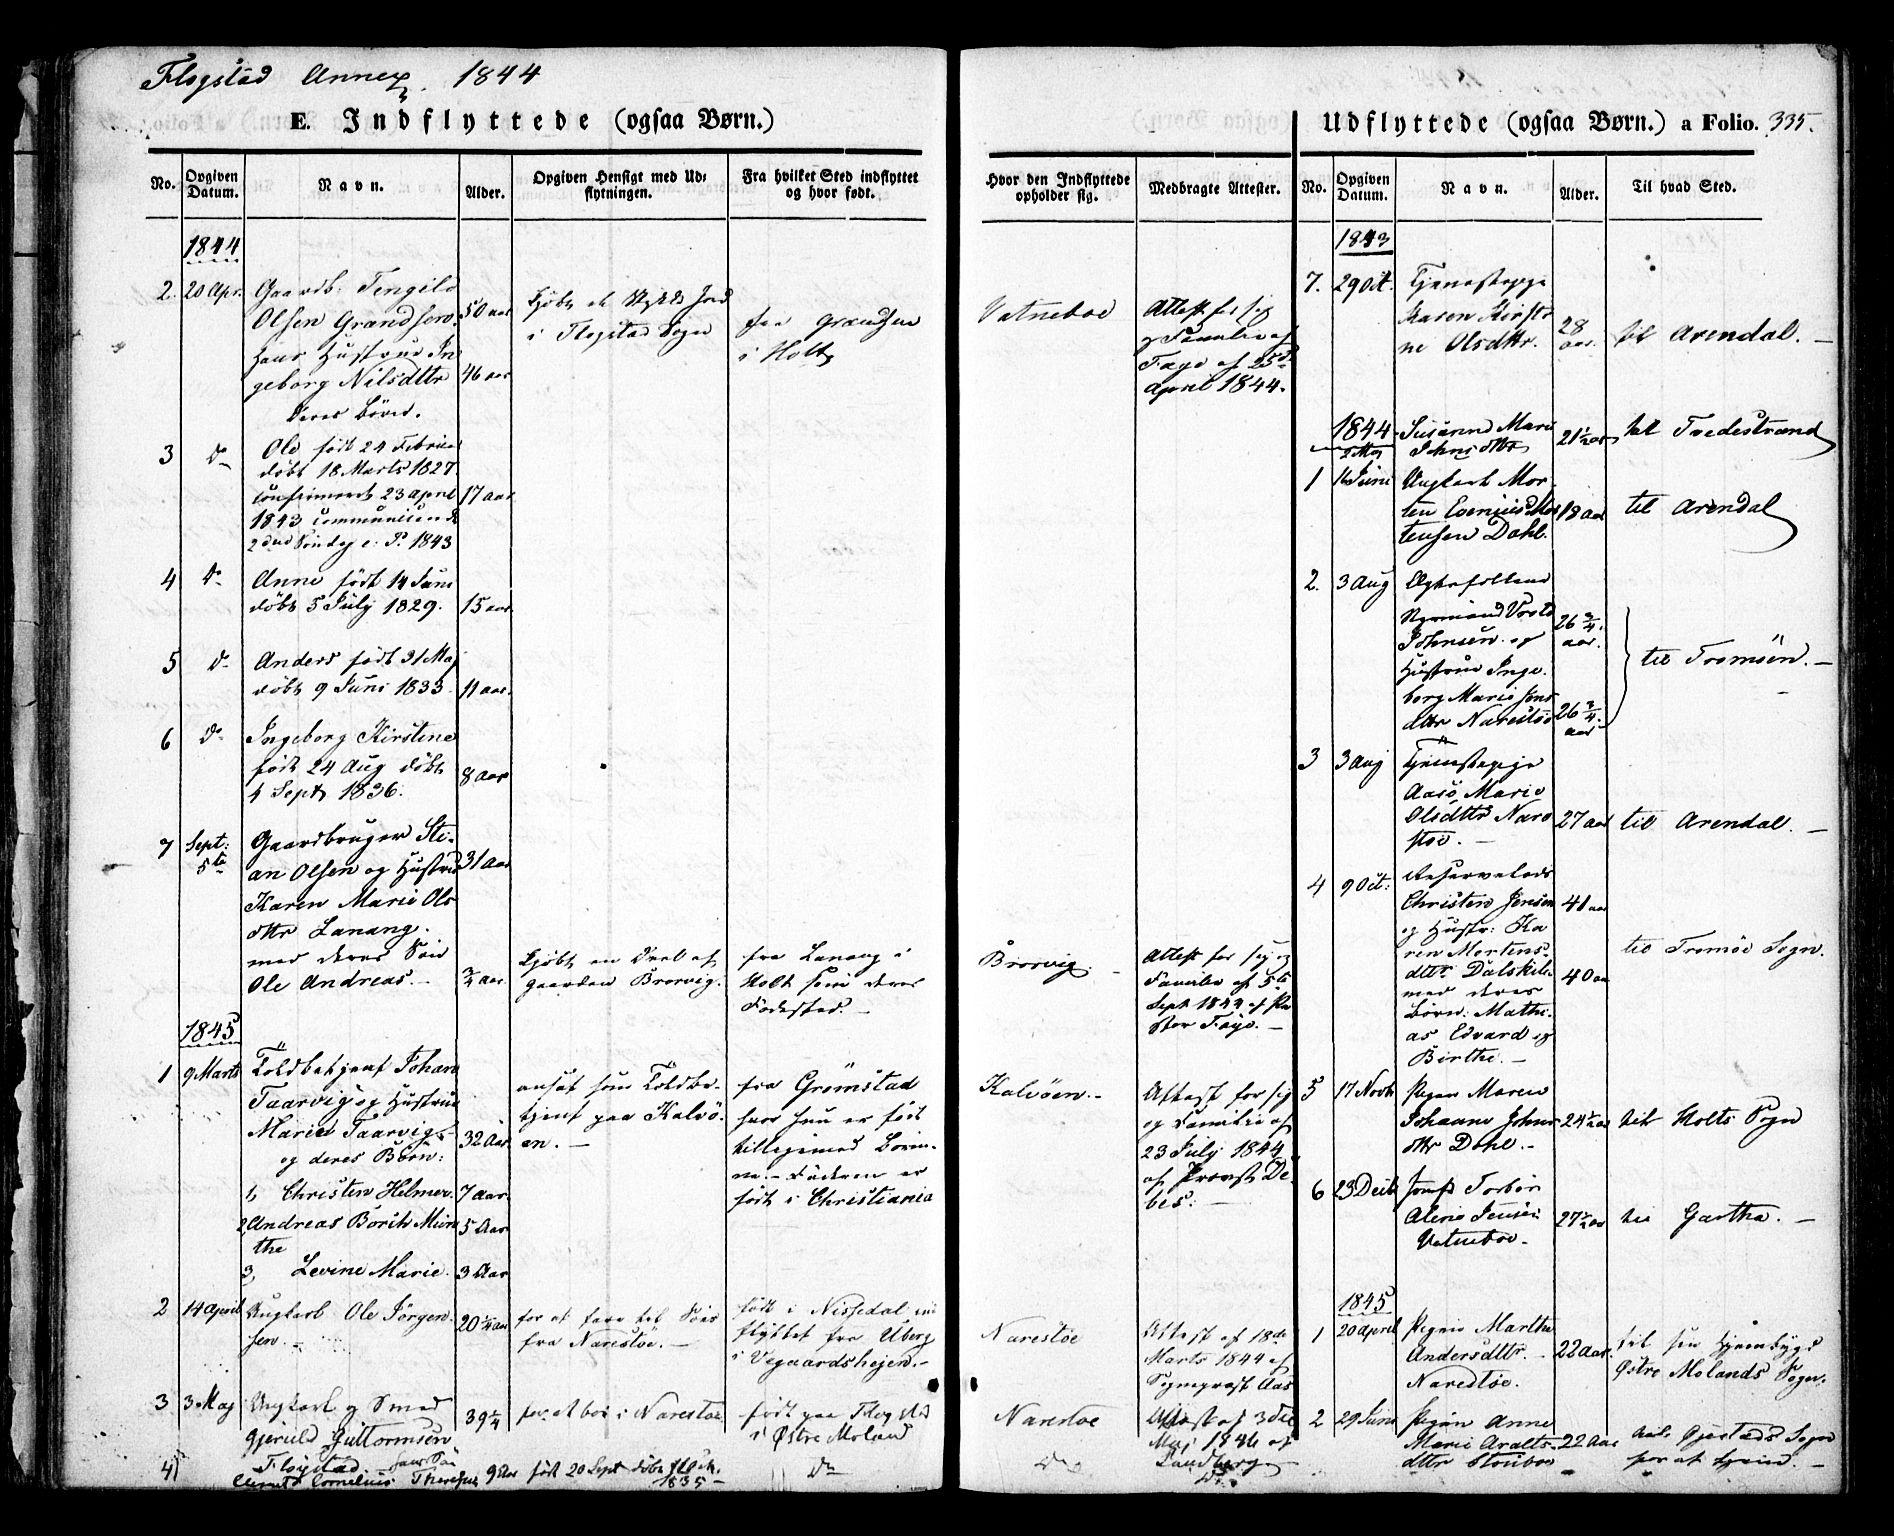 Flogstad Annex. 1844
E. Indflyttede (ogsaa Børn.)
No.
Opgiven Datum.
Navn.
Alder.
Opgiven Hensigt med Ud-
flytningen.
Fra hvilket Sted indflyttet
og hvor født.
Hvor den Indflyttede
opholder sig.
Medbragte Attester.
1844
2. 20 Apr.
Gaardb. Tengild
Olsen Grændsen
50 aar
hans Hustrue In
geborg Nilsdttr
46 aar
deres Børn.
Kjøbt et Stykke Jord
i Flogstad Sogn
fra Grændsen
i Holt
Vatneboe
Attest for sig
og Familie af
Faye af 25de
April 1844.
3 do
Ole født 24 Februar
døbt 18 Marts 1827
confirmeret 23 April
17 aar
1843 communiceret
2den Søndag e. P. 1843
4 do
Anne født 14 Juni
døbt 5 July 1829.
15 aar
5 do
Anders født 31 Maj
døbt 9 Juni 1833
11 aar.
6 do
Ingeborg Kirstine
født 24 Aug døbt
8 aar
4 Sept 1836.
7 Sept: 5te
Gaardbruger Sti-
an Olsen og Hustrue
31 aar
Karen Marie Ols
dttr Lanang.
med deres Søn
Ole Andreas.
¾ aar.
Kjøbt en Deel af
gaarden Brorvig.
fra Lanang i
Holt som deres
Fødested.
Brorvig
Attest for sig og
Familie af 5te
Sept 1844 af Pa
stor Faye.
1845
1 9 Marts
Toldbetjent Johan
Taarvig og Hustrue
Marie Taarvig
32 Aar.
og deres Børn:
1, Christen Helmer. 7 aar.
2, Andreas Borith Mun
the
5 Aar
3, Levine Marie. 3 Aar
ansat som Toldbe-
tjent paa Kalvø-
en.
fra Grømstad
hvor hun er født
tilligemed Børn-
ne. Faderen er
født i Christiania
Kalvøen.
Attest for sig
og Familie af
23 July 1844
af Provst De-
bes:
2 14 April
Ungkarl Ole Jørgen
sen.
20¼ aar
for at fare til Søes
fra Narestøe.
født i Nissedal ind
flyttet fra Uberg
i Vegaardshejen.
Narestøe
Attest af 18de
Marts 1844 af
Sognepræst Aas
3 3 Maj
Ungkarl og Smed
Gjeruld Guttormsen
39¼
Flogstad
for at boe i Narestøe
født paa Flogstad
i Østre Moland
Narestøe
Attest af 3die
Maj 1844 af
Landberg
4
hans Søn
Cornelius
9 Aar født 20 Sept døbt
1835
do
do
do
Udflyttede (ogsaa Børn.) a Folio. 335.
No.
Opgiven Datum.
Navn.
Alder.
Til hvad Sted.
1843
7. 29 Oct.
Tjenestepige
Karen Kirsti
ne Olsdttr.
28 aar.
til Arendal.
1844
2 Maj
Susanne Marie
Johnsdttr
21½ aar
til Tvedestrand
1 16 Juni
Ungkarl Mor-
ten Evenius Mor
tensen Dahl.
18 aar
til Arendal
2. 3 Aug
Ægtefolkene
Styrmand
Johnsen og
26¾ aar.
Hustrue Inge-
borg Marie Jens
dttr Narestøe
26¾ aar
til Tromsøen.
3 3 Aug
Tjenestepige
Aase Marie
Olsdttr Nare
støe.
27 aar
til Arendal.
4 9 Oct:
Reservelods
Christen Jensen
41 aar
og Hustr: Ka
ren Mortens-
dttr Dalskile
40 aar
med deres
Børn: Mathi
as Edvard og
Birthe.
til Tromøe Sogn.
5 17 Novb
Pigen Maren
Johanne Johns
dttr Dahl.
24½ aar
til Holts Sogn
6 23 Decb
Torbør
Alene Jensen
Vatneboe.
27½ aar
til Gartha.
1845
1 20 April
Pigen Marthe
Andersdttr.
Naredtøe.
22 Aar.
til sin Hjembygd
Østre Molands Sogn.
2 29 Juni
Pigen Anne
Marie Aralts-
dttr Stoeboe
22 Aar
til Gjestads Sogn
for at tjene.